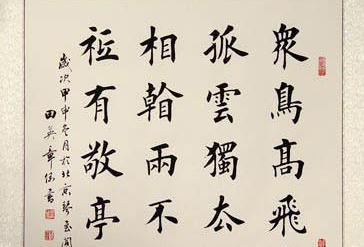 衆鳥髙飛
孤雲獨厺
相兩不
祗有敬亭
歲次甲申月於北京
田英章書